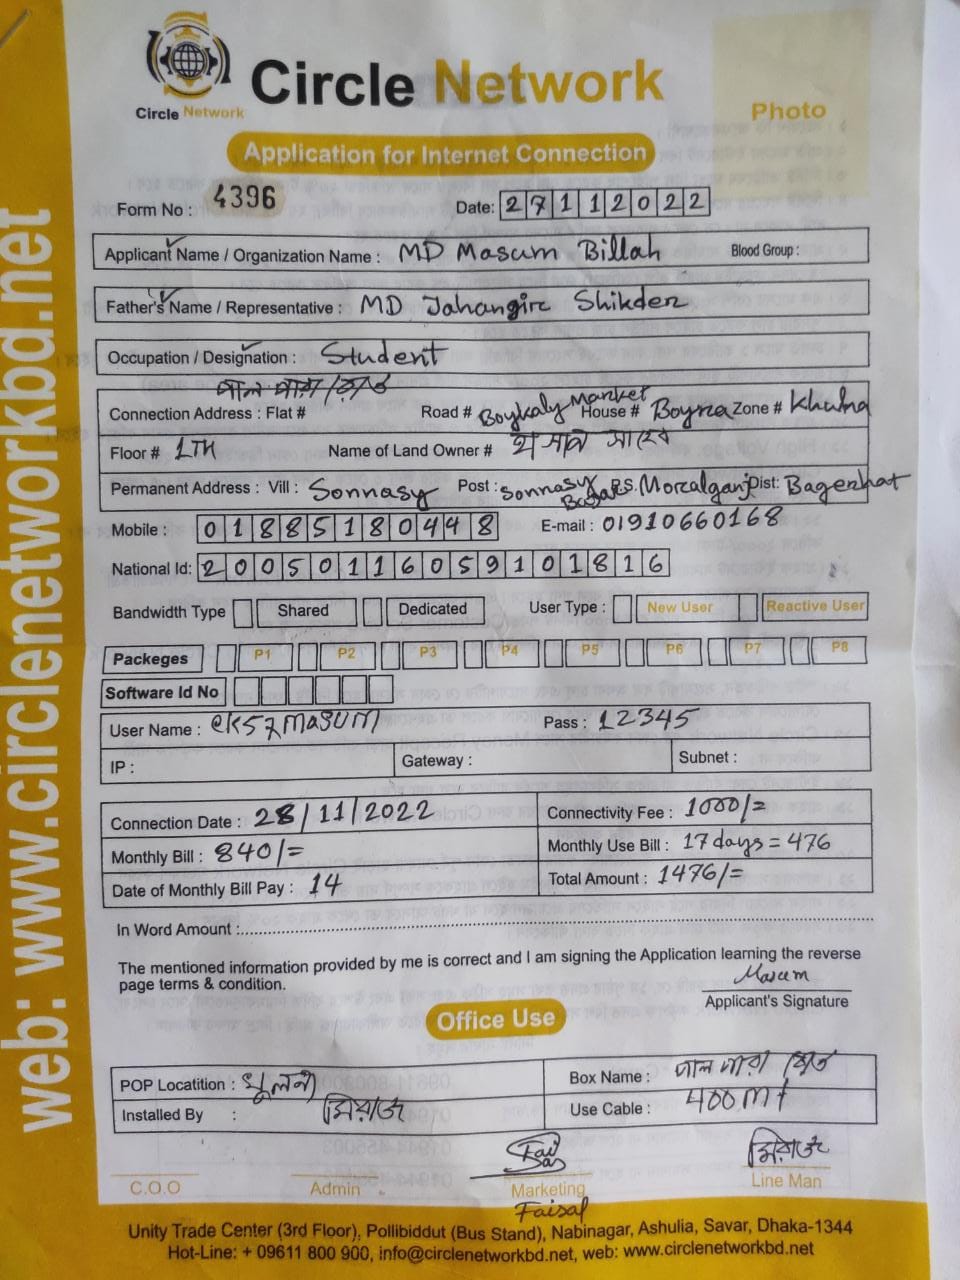 Circle Network
Circle Network
Photo
Application for Internet Connection
Form No : 4396
Date: 27112022
Applicant Name / Organization Name : MD Masum Billah Blood Group :
Father's Name / Representative : MD Jahangir Shikder
Occupation / Designation : Student
পাল পাড়া
Connection Address : Flat # Road # Boykaly Market House # Boyra Zone # Khulna
Floor # 1TH Name of Land Owner #
Permanent Address : Vill : Sonnasy Post : Sonnasy Bazar P.S. Morralganj Dist: Bagerhat
Mobile : 01885180448 E-mail : 01910660168
National Id: 20050116059101816
Bandwidth Type Shared Dedicated User Type : New User Reactive User
Packeges P1 P2 P3 P4 P5 P6 P7 P8
Software Id No
User Name : ck57masum Pass : 12345
IP : Gateway : Subnet :
Connection Date : 28/11/2022 Connectivity Fee : 1000/=
Monthly Bill : 840/= Monthly Use Bill : 17 days = 476
Date of Monthly Bill Pay : 14 Total Amount : 1476/=
In Word Amount :
The mentioned information provided by me is correct and I am signing the Application learning the reverse
page terms & condition.
Masum
Applicant's Signature
Office Use
POP Locatition : খুলনা Box Name : পাল পাড়া
Installed By : মিরাজ Use Cable : 400 mt
মিরাজ
C.O.O Admin Marketing Line Man
Faisal
Unity Trade Center (3rd Floor), Pollibiddut (Bus Stand), Nabinagar, Ashulia, Savar, Dhaka-1344
Hot-Line: + 09611 800 900, info@circlenetworkbd.net, web: www.circlenetworkbd.net
web: www.circlenetworkbd.net